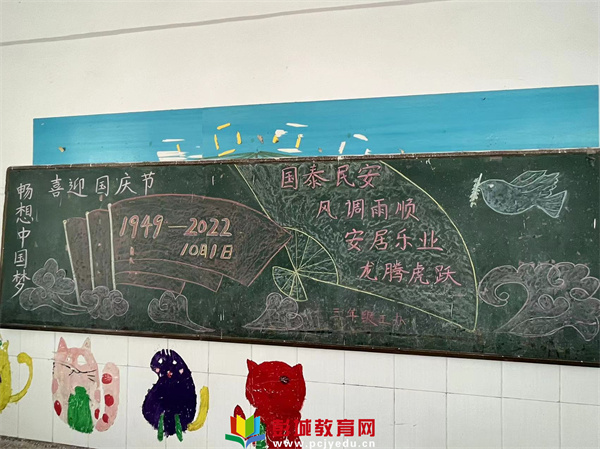 畅想中国梦
喜迎国庆节
1949—2022
10月1日
国泰民安
风调雨顺
安居乐业
龙腾虎跃
城教育网
www.pcjyedu.cn